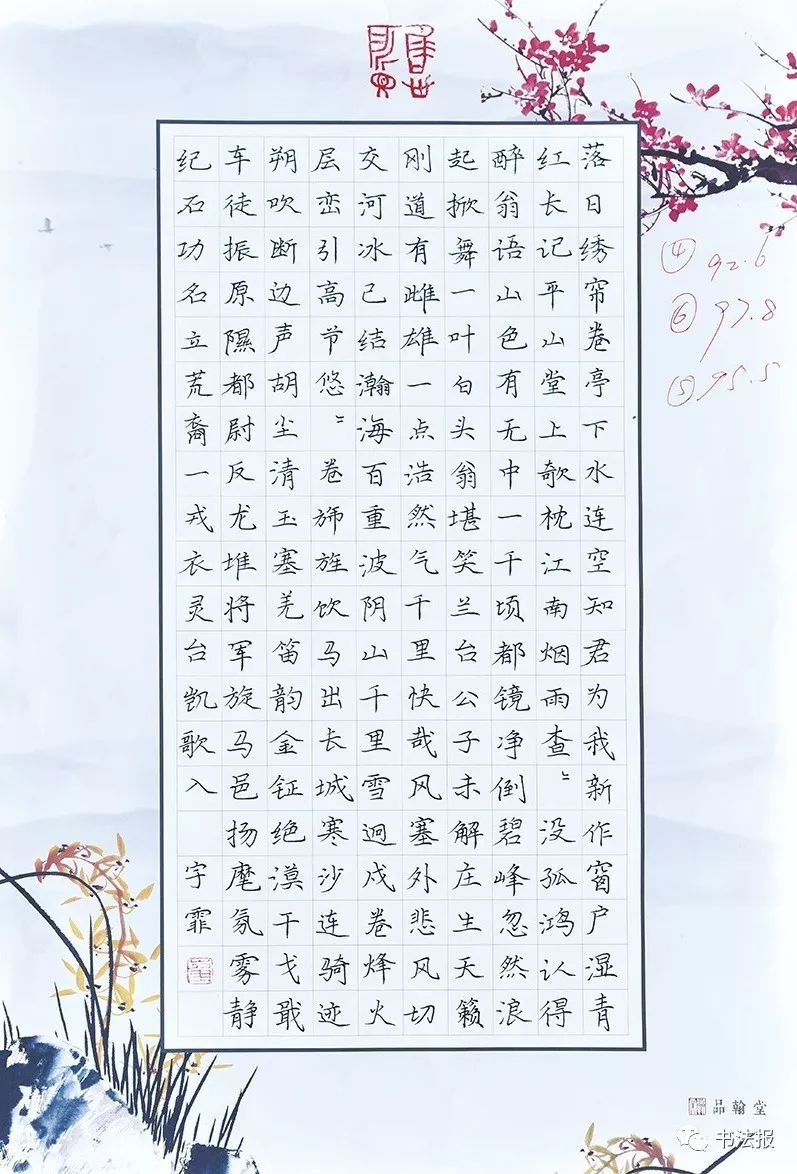 落日绣帘卷亭下水连空知君为我新作窗户湿青
红长记平山堂上欹枕江南烟雨查〻没孤鸿认得
醉翁语山色有无中一千顷都镜净倒碧峰忽然浪
起掀舞一叶白头翁堪笑兰台公子未解庄生天籁
刚道有雌雄一点浩然气千里快哉风塞外悲风切
交河冰已结瀚海百重波阴山千里雪迥戍卷烽火
层峦引高节悠〻卷旆旌饮马出长城寒沙连骑迹
朔吹断边声胡尘清玉塞羌笛韵金钲绝漠干戈戢
车徒振原隰都尉反龙堆将军旋马邑扬麾氛雾静
纪石功名立荒裔一戎衣灵台凯歌入
宇霏
④ 92.6
⑥ 97.8
⑤ 95.5
品翰堂
书法报